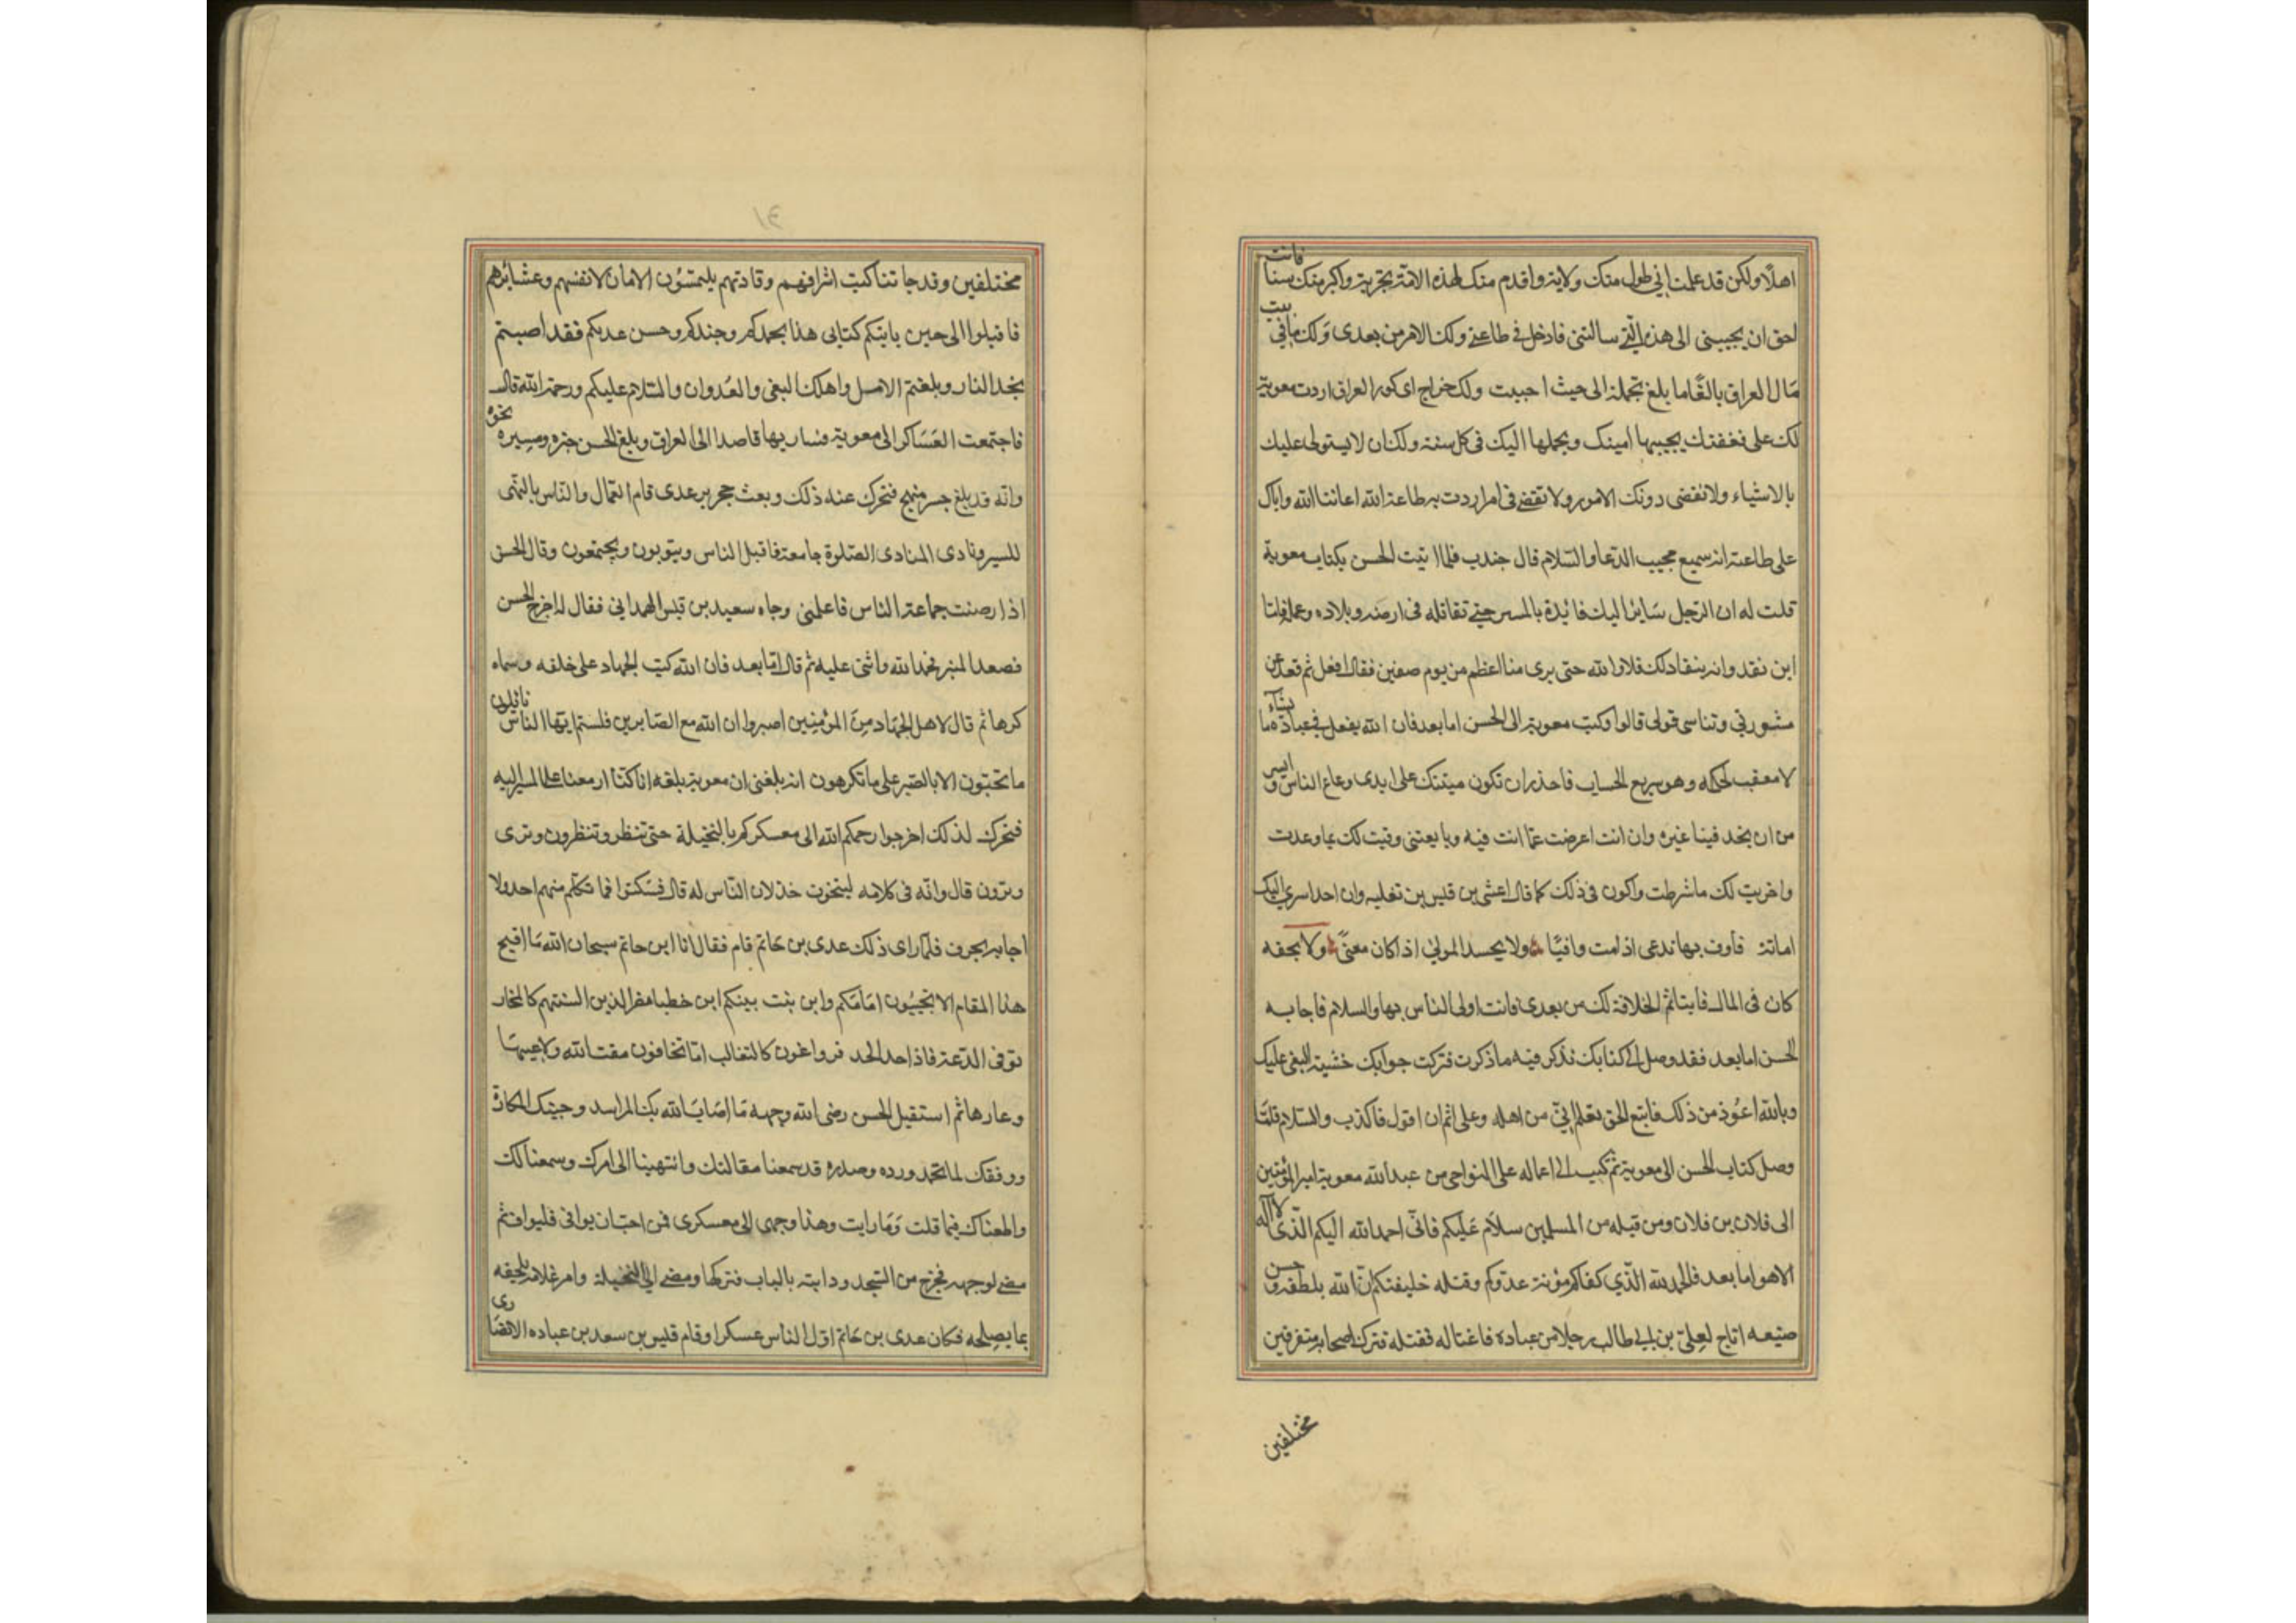 اهلا ولكن قد علمت اني اطول منك ولاية واقدم منك لهذه الامة تجربة واكبر منك سنا فانت
احق ان يجيبني الى هذه التي سالتني فادخل في طاعتي ولك الامر من بعدى ولك ما في بيت
مال العراق بالغا ما بلغ تحمله الى حيث احببت ولك خراج اى كور العراق اردت معوية
لك على نفقتك يجيبها امينك ويحملها اليك في كل سنة ولك ان لا يستولى عليك
بالاشياء ولا تقضى دونك الامور ولا تقضى في امر اردت به طاعة الله اعاننا الله واياك
على طاعته انه سميع مجيب الدعا والسلام قال جندب فلما اتيت الحسن بكتاب معوية
قلت له ان الرجل سائر اليك فابدة بالمسير حتى تقاتله في ارضه وبلاده
حتى يرى منا اعظم من يوم صفين فقال افعل ثم قعد عن
مشورتي وتناسى قولى قالوا وكتب معوية الى الحسن اما بعد فان الله يفعل في عباده ما يشاء
لا معقب لحكمه وهو سريع الحساب فاحذر ان تكون ميتتك على ايدى رعاع الناس وايس
من ان تجد فينا غيره وان انت اعرضت عما انت فيه وبايعتني وفيت لك بما وعدت
واجريت لك ما شرطت واكون في ذلك كما قال اعشى بن قيس بن تغلبه وان احدا سرى اليك
امانة فاوف بها تدعى اذا مت وافيا ولا يحسد المولى اذا كان معنى ولا يجفه
كان في المال فايتا ثم الخلافة لك من بعدى فانت اولى الناس بها والسلام فاجابه
الحسن اما بعد فقد وصل الى كتابك تذكر فيه ما ذكرت فتركت جوابك خشية البغى عليك
وبالله اعوذ من ذلك فاتبع الحق تعلم اني من اهله وعلى اثم ان اقول فاكذب والسلام فلما
وصل كتاب الحسن الى معوية ثم كتب الى اعماله على النواحى من عبد الله معوية امير المؤمنين
الى فلان بن فلان ومن قبله من المسلمين سلام عليكم فاني احمد الله اليكم الذى لا اله
الا هو اما بعد فالحمد لله الذي كفاكم مؤنة عدوكم وقتله خليفتكم ان الله بلطفه وحسن
صنيعه اتاح لعلى بن ابي طالب رجلا من عباده فاغتاله فقتله فترك اصحابه متفرقين
مختلفين
١٤
مختلفين وقد جاتنا كتب اشرافهم وقادتهم يلتمسون الامان لانفسهم وعشائرهم
فاقبلوا الى حين ياتيكم كتابى هذا بجهدكم وجندكم وحسن عدتكم فقد اصبتم
بحد الثار وبلغتم الامل واهلك البغى والعدوان والسلام عليكم ورحمة الله قال
فاجتمعت العساكر الى معوية فسار بها قاصدا الى العراق وبلغ الحسن خبره ومسيره نحوه
وانه قد بلغ جسر منبج فتحرك عنه ذلك وبعث حجر بن عدى قام العمال والناس بالتهى
للسير ونادى المنادى الصلوة جامعة فاقبل الناس ويتوبون ويجتمعون وقال الحسن
اذا رضيت جماعة الناس فاعلمنى وجاه سعيد بن قيس الهمداني فقال له اخرج الحسن
فصعد المنبر فحمد الله واثنى عليه ثم قال اما بعد فان الله كتب الجهاد على خلقه وسماه
كرها ثم قال لاهل الجهاد من المؤمنين اصبروا ان الله مع الصابرين فلستم ايها الناس نائلون
ما تحبون الا بالصبر على ما تكرهون انه بلغنى ان معوية بلغه انا كنا ازمعنا على المسير اليه
فتحرك لذلك اخرجوا رحمكم الله الى معسكركم بالنخيلة حتى تنظر وتنظرون وترى
وترون قال وانه في كلامه ليتخوت خذلان الناس له قال فسكتوا فما تكلم منهم احد ولا
اجابه بحرف فلما راى ذلك عدى بن حاتم قام فقال انا ابن حاتم سبحان الله ما اقبح
هذا المقام الا تجيبون امامكم وابن بنت بينكم ابن خطبا مضر الذين السنتهم كالمخار
توفى الدعة فاذا احد الجد فرواغون كالثغالب اما تخافون مقت الله ولا عيبها
وعارها ثم استقبل الحسن رضى الله وجهه ما اصاب الله بك المراسد وجبتك المكاره
ووفقك لما تحمد ورده وصدره قد سمعنا مقالتك وانتهينا الى امرك وسمعنا لك
واطعناك فيما قلت وما رايت وهذا وجهى الى معسكرى فمن احب ان يوافى فليواف ثم
مضى لوجهه فخرج من المسجد ودابته بالباب فتركها ومضى الى النخيلة وامر غلامه يلحقه
بما يصلحه فكان عدى بن حاتم اول الناس عسكرا وقام قليس بن سعد بن عباده الانصارى